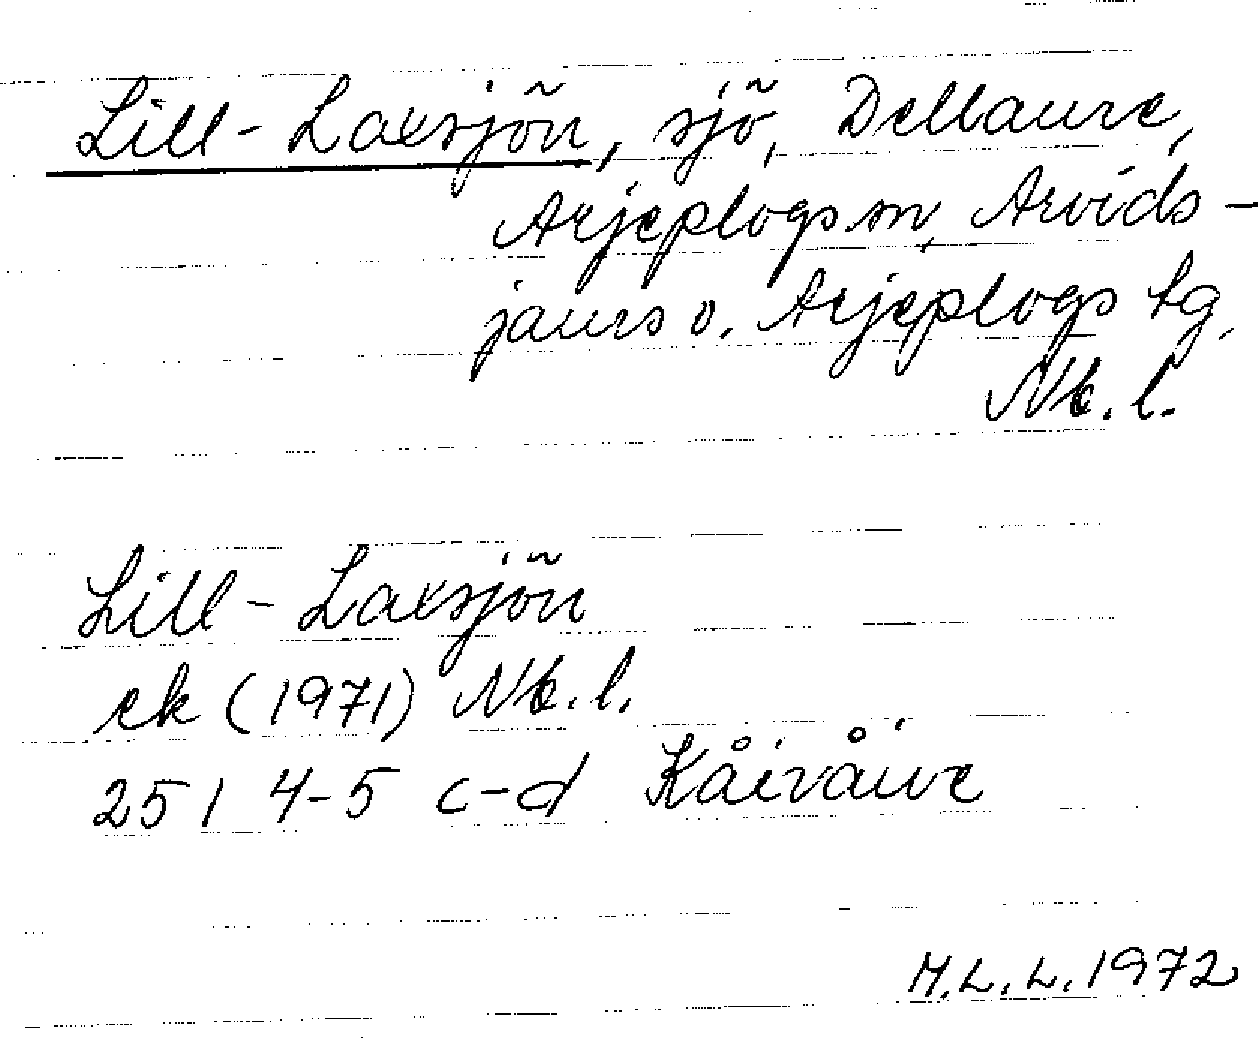 Lill-Laxsjön, sjö, Dellaure,
Arjeplogs sn, Arvids-
jaurs o. Arjeplogs tg,
Nb. l.
Lill-Laxsjön
ek (1971) Nb. l.
25 I 4-5 c-d Kåivåive
M.L.L. 1972